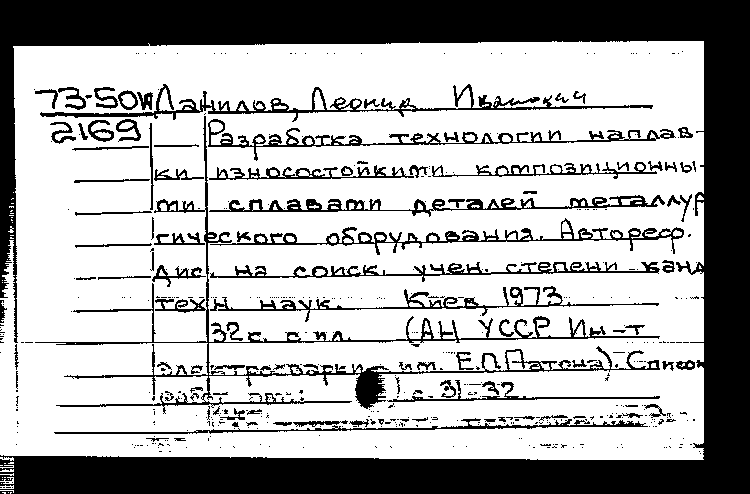 73-50 Данилов, Леонид Иванович
2169 Разработка технологии наплав-
ки износостойкими композиционны-
ми сплавами деталей металлур
гического оборудования. Автореф.
дис. на соиск. учен. степени канд
техн. наук. Киев, 1973.
32с. с ил. (АН УССР. Ин-т
электросварки им. Е.О.Патона). Список
работ авт.: ) с. 31-32.